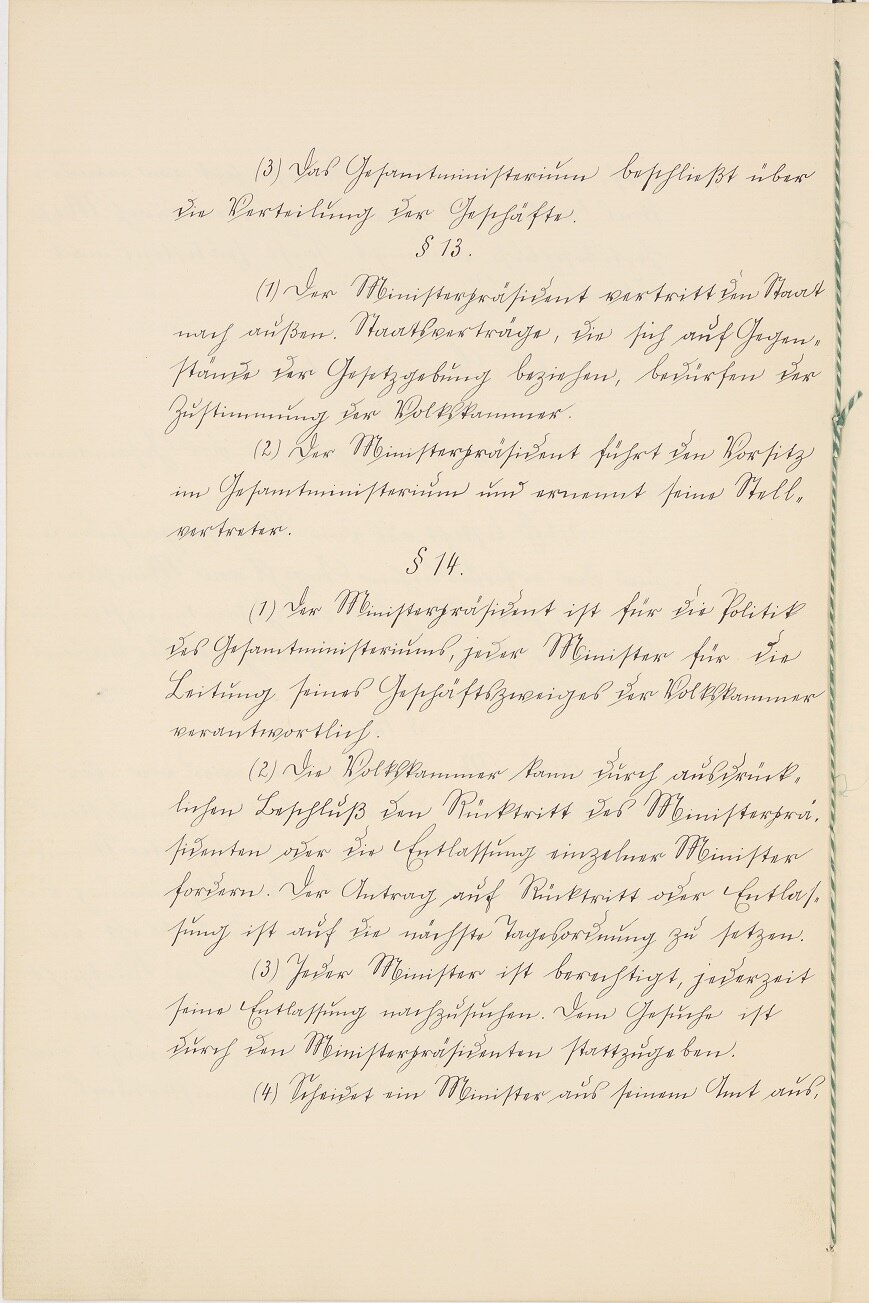 (3) Das Gesamtministerium beschließt über
die Verteilung der Geschäfte.
§ 13.
(1) Der Ministerpräsident vertritt den Staat
nach außen. Staatsverträge, die sich auf Gegen-
stände der Gesetzgebung beziehen, bedürfen der
Zustimmung der Volkskammer.
(2) Der Ministerpräsident führt den Vorsitz
im Gesamtministerium und ernennt seine Stell-
vertreter.
§ 14.
(1) Der Ministerpräsident ist für die Politik
des Gesamtministeriums, jeder Minister für die
Leitung seines Geschäftszweiges der Volkskammer
verantwortlich.
(2) Die Volkskammer kann durch ausdrück-
lichen Beschluß den Rücktritt des Ministerprä-
sidenten oder die Entlassung einzelner Minister
fordern. Der Antrag auf Rücktritt oder Entlas-
sung ist auf die nächste Tagesordnung zu setzen.
(3) Jeder Minister ist berechtigt, jederzeit
seine Entlassung nachzusuchen. Dem Gesuche ist
durch den Ministerpräsidenten stattzugeben.
(4) Scheidet ein Minister aus seinem Amt aus,